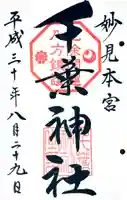 妙見本宮
千葉神社
平成三十年八月二十九日